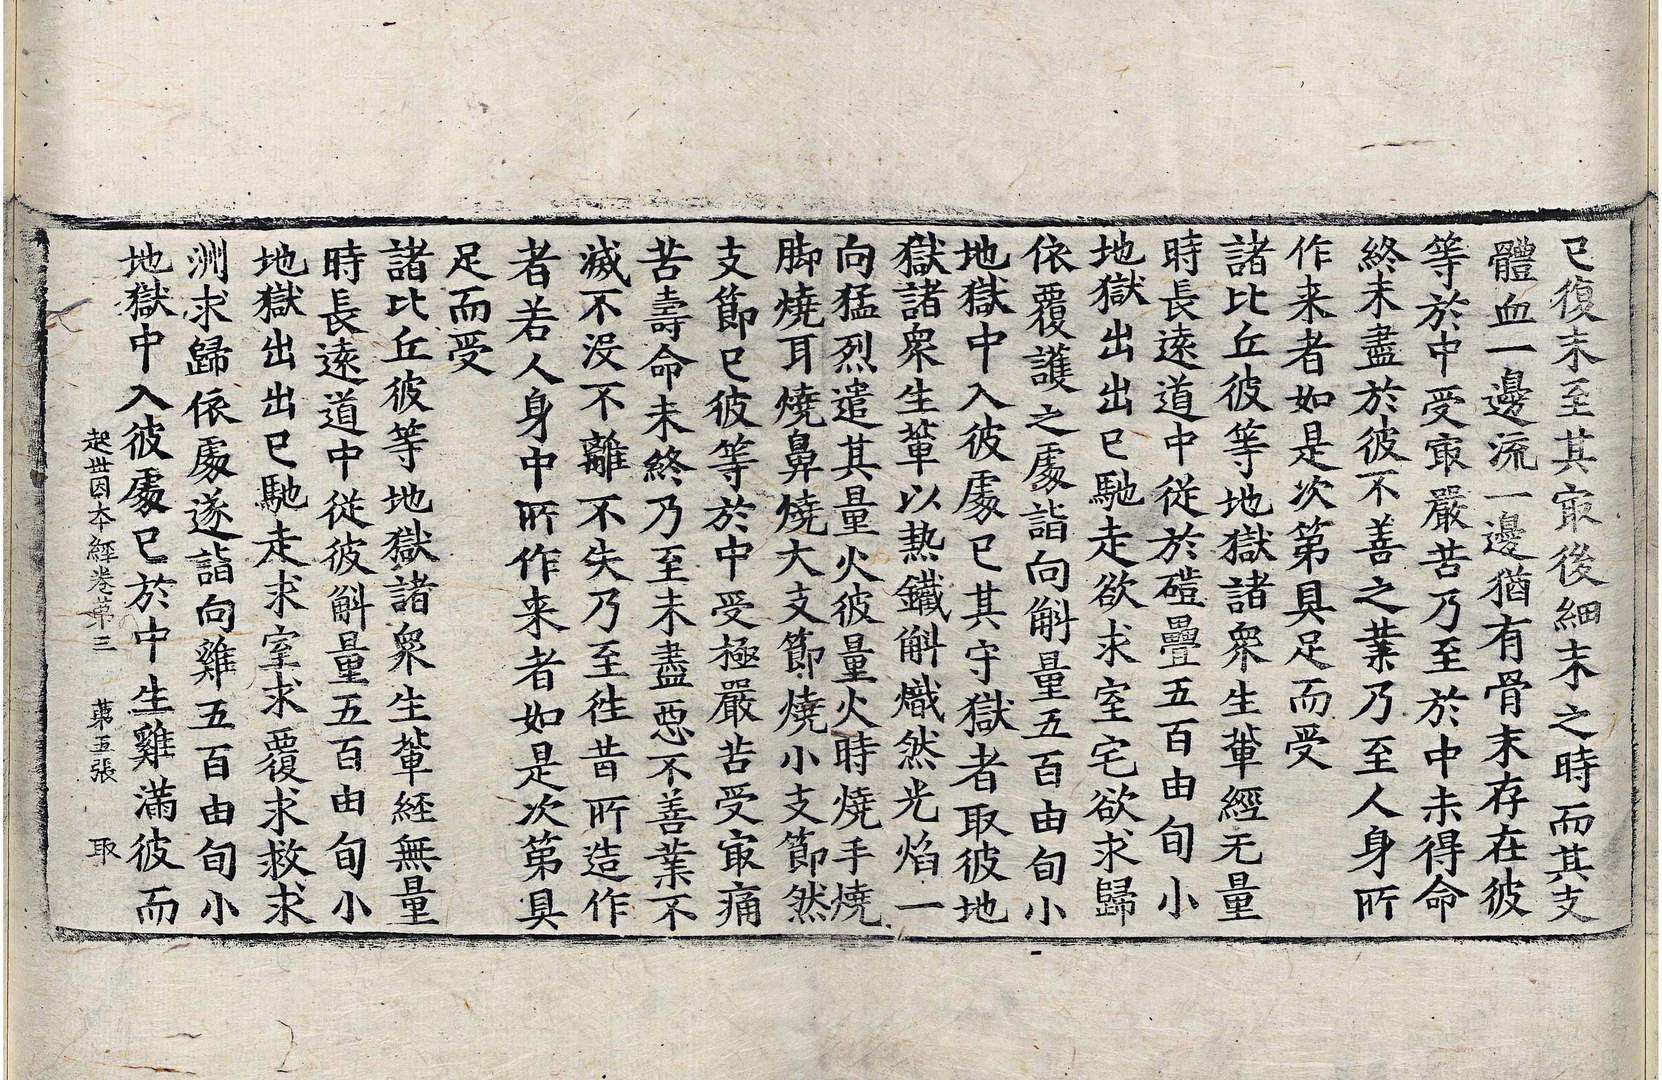 已復末至其㝡後細末之時而其支
體血一邊流一邊猶有骨末存在彼
等於中受㝡嚴苦乃至於中未得命
終未盡於彼不善之業乃至人身所
作来者如是次第具足而受
諸比丘彼等地獄諸衆生軰經无量
時長逺道中從於磑疊五百由旬小
地獄出出已馳走欲求室宅欲求歸
依覆護之處詣向斛量五百由旬小
地獄中入彼處已其守獄者取彼地
獄諸衆生軰以熱鐵斛熾然光焰一
向猛烈遣其量火彼量火時燒手燒
脚燒耳燒鼻燒大支節燒小支節然
支節已彼等於中受極嚴苦受㝡痛
苦壽命未終乃至未盡惡不善業不
滅不没不離不失乃至徃昔所造作
者若人身中所作来者如是次第具
足而受
諸比丘彼等地獄諸衆生軰經無量
時長逺道中從彼斛量五百由旬小
地獄出出已馳走求室求覆求救求
洲求歸依處遂詣向雞五百由旬小
地獄中入彼處已於中生雞滿彼而
起世因本經卷苐三 苐五張 取